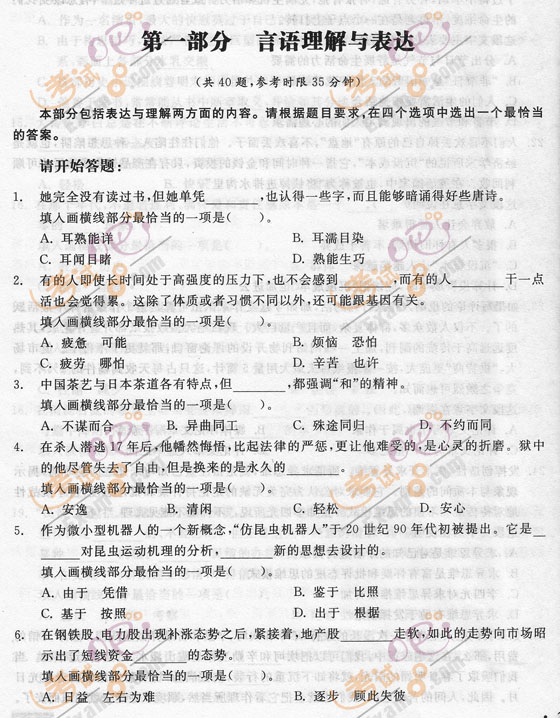 第一部分 言语理解与表达
(共 40 题,参考时限 35 分钟)
本部分包括表达与理解两方面的内容。请根据题目要求,在四个选项中选出一个最恰当
的答案。
请开始答题:
1. 她完全没有读过书,但她单凭________,也认得一些字,而且能够暗诵得好些唐诗。
填入画横线部分最恰当的一项是( )。
A. 耳熟能详 B. 耳濡目染
C. 耳闻目睹 D. 熟能生巧
2. 有的人即使长时间处于高强度的压力下,也不会感到________,而有的人________干一点
活也会觉得累。这除了体质或者习惯不同以外,还可能跟基因有关。
填入画横线部分最恰当的一项是( )。
A. 疲惫 可能 B. 烦恼 恐怕
C. 疲劳 哪怕 D. 辛苦 也许
3. 中国茶艺与日本茶道各有特点,但________,都强调“和”的精神。
填入画横线部分最恰当的一项是( )。
A. 不谋而合 B. 异曲同工 C. 殊途同归 D. 不约而同
4. 在杀人潜逃 17 年后,他幡然悔悟,比起法律的严惩,更让他难受的,是心灵的折磨。狱中
的他尽管失去了自由,但是换来的是永久的________。
填入画横线部分最恰当的一项是( )。
A. 安逸 B. 清闲 C. 轻松 D. 安心
5. 作为微小型机器人的一个新概念,“仿昆虫机器人”于 20 世纪 90 年代初被提出。它是__
______对昆虫运动机理的分析,________新的思想去设计的。
填入画横线部分最恰当的一项是( )。
A. 由于 凭借 B. 鉴于 比照
C. 基于 按照 D. 出于 根据
6. 在钢铁股、电力股出现补涨态势之后,紧接着,地产股________走软,如此的走势向市场昭
示出了短线资金________的态势。
填入画横线部分最恰当的一项是( )。
A. 日益 左右为难 B. 逐步 顾此失彼